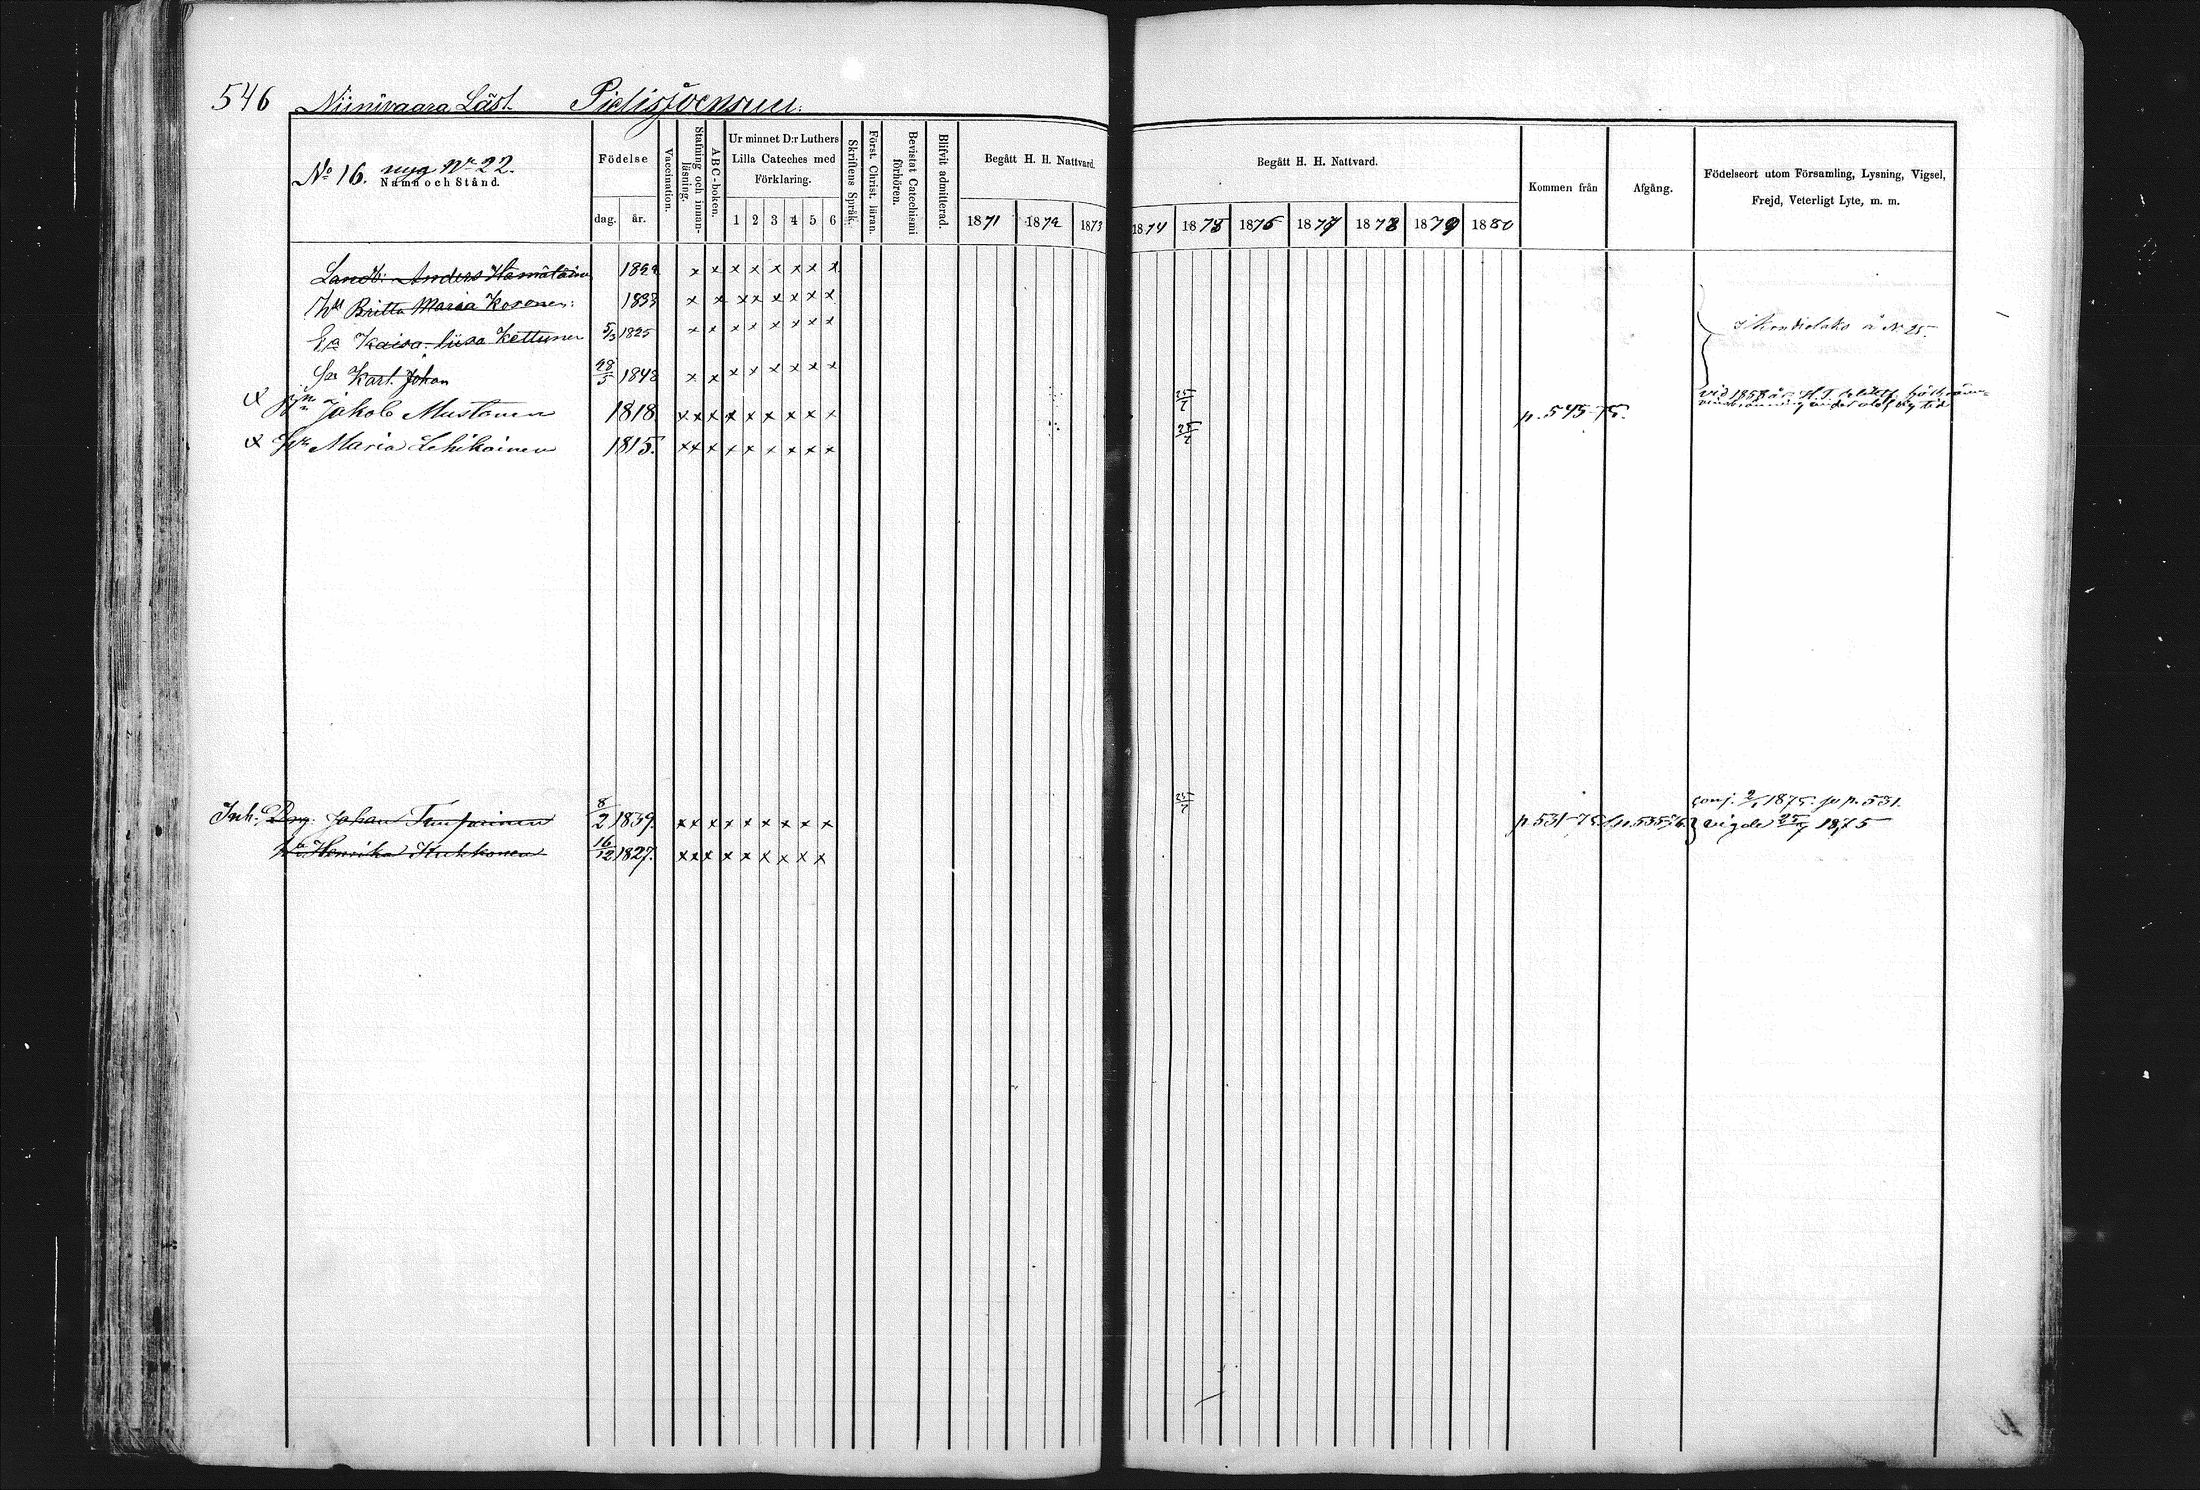 546 Niinivaara Läst. Pielisjoensuu.
No 16. nya No 22.
Namn och Stånd.
Födelse
dag. år.
Vaccination.
Stafning och innanläsning.
A B C-boken.
Ur minnet D:r Luthers
Lilla Cateches med
Förklaring.
1 2 3 4 5 6
Skriftens Språk.
Först. Christ. läran.
Bevistat Catechismi förhören.
Blifvit admitterad.
Begått H. H. Nattvard.
1871 1872 1873
Begått H. H. Nattvard.
1874 1875 1876 1877 1878 1879 1880
Kommen från
Afgång.
Födelseort utom Församling, Lysning, Vigsel,
Frejd, Veterligt Lyte, m. m.
Anders Hämäläinen x x x x x x x x
Britta Maria Kosonen 1833 x x x x x x x x
Kaisa Liisa Kettunen 5/3 1825 x x x x x x x x i Kondiolaks å No 25
Karl Johan 28/5 1848 x x x x x x x x
Jakob Mustonen 1818 x x x x x x x x x 25/7 p. 545-75.
Maria Lehikoinen 1815. x x x x x x x x x 25/7
conj. 2/5 1875. p. 531.
Inh. Drg. Johan Timparinen 8/2 1839. x x x x x x x x x 25/7 p. 531-75 p. 535.76 vigde 25/7 1875
Henrika Kukkonen 16/12 1827. x x x x x x x x x